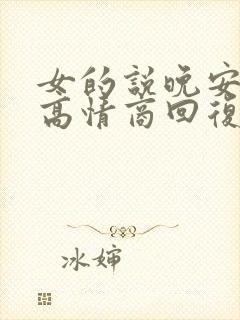 女的説晚安
高情商回復
冰婶